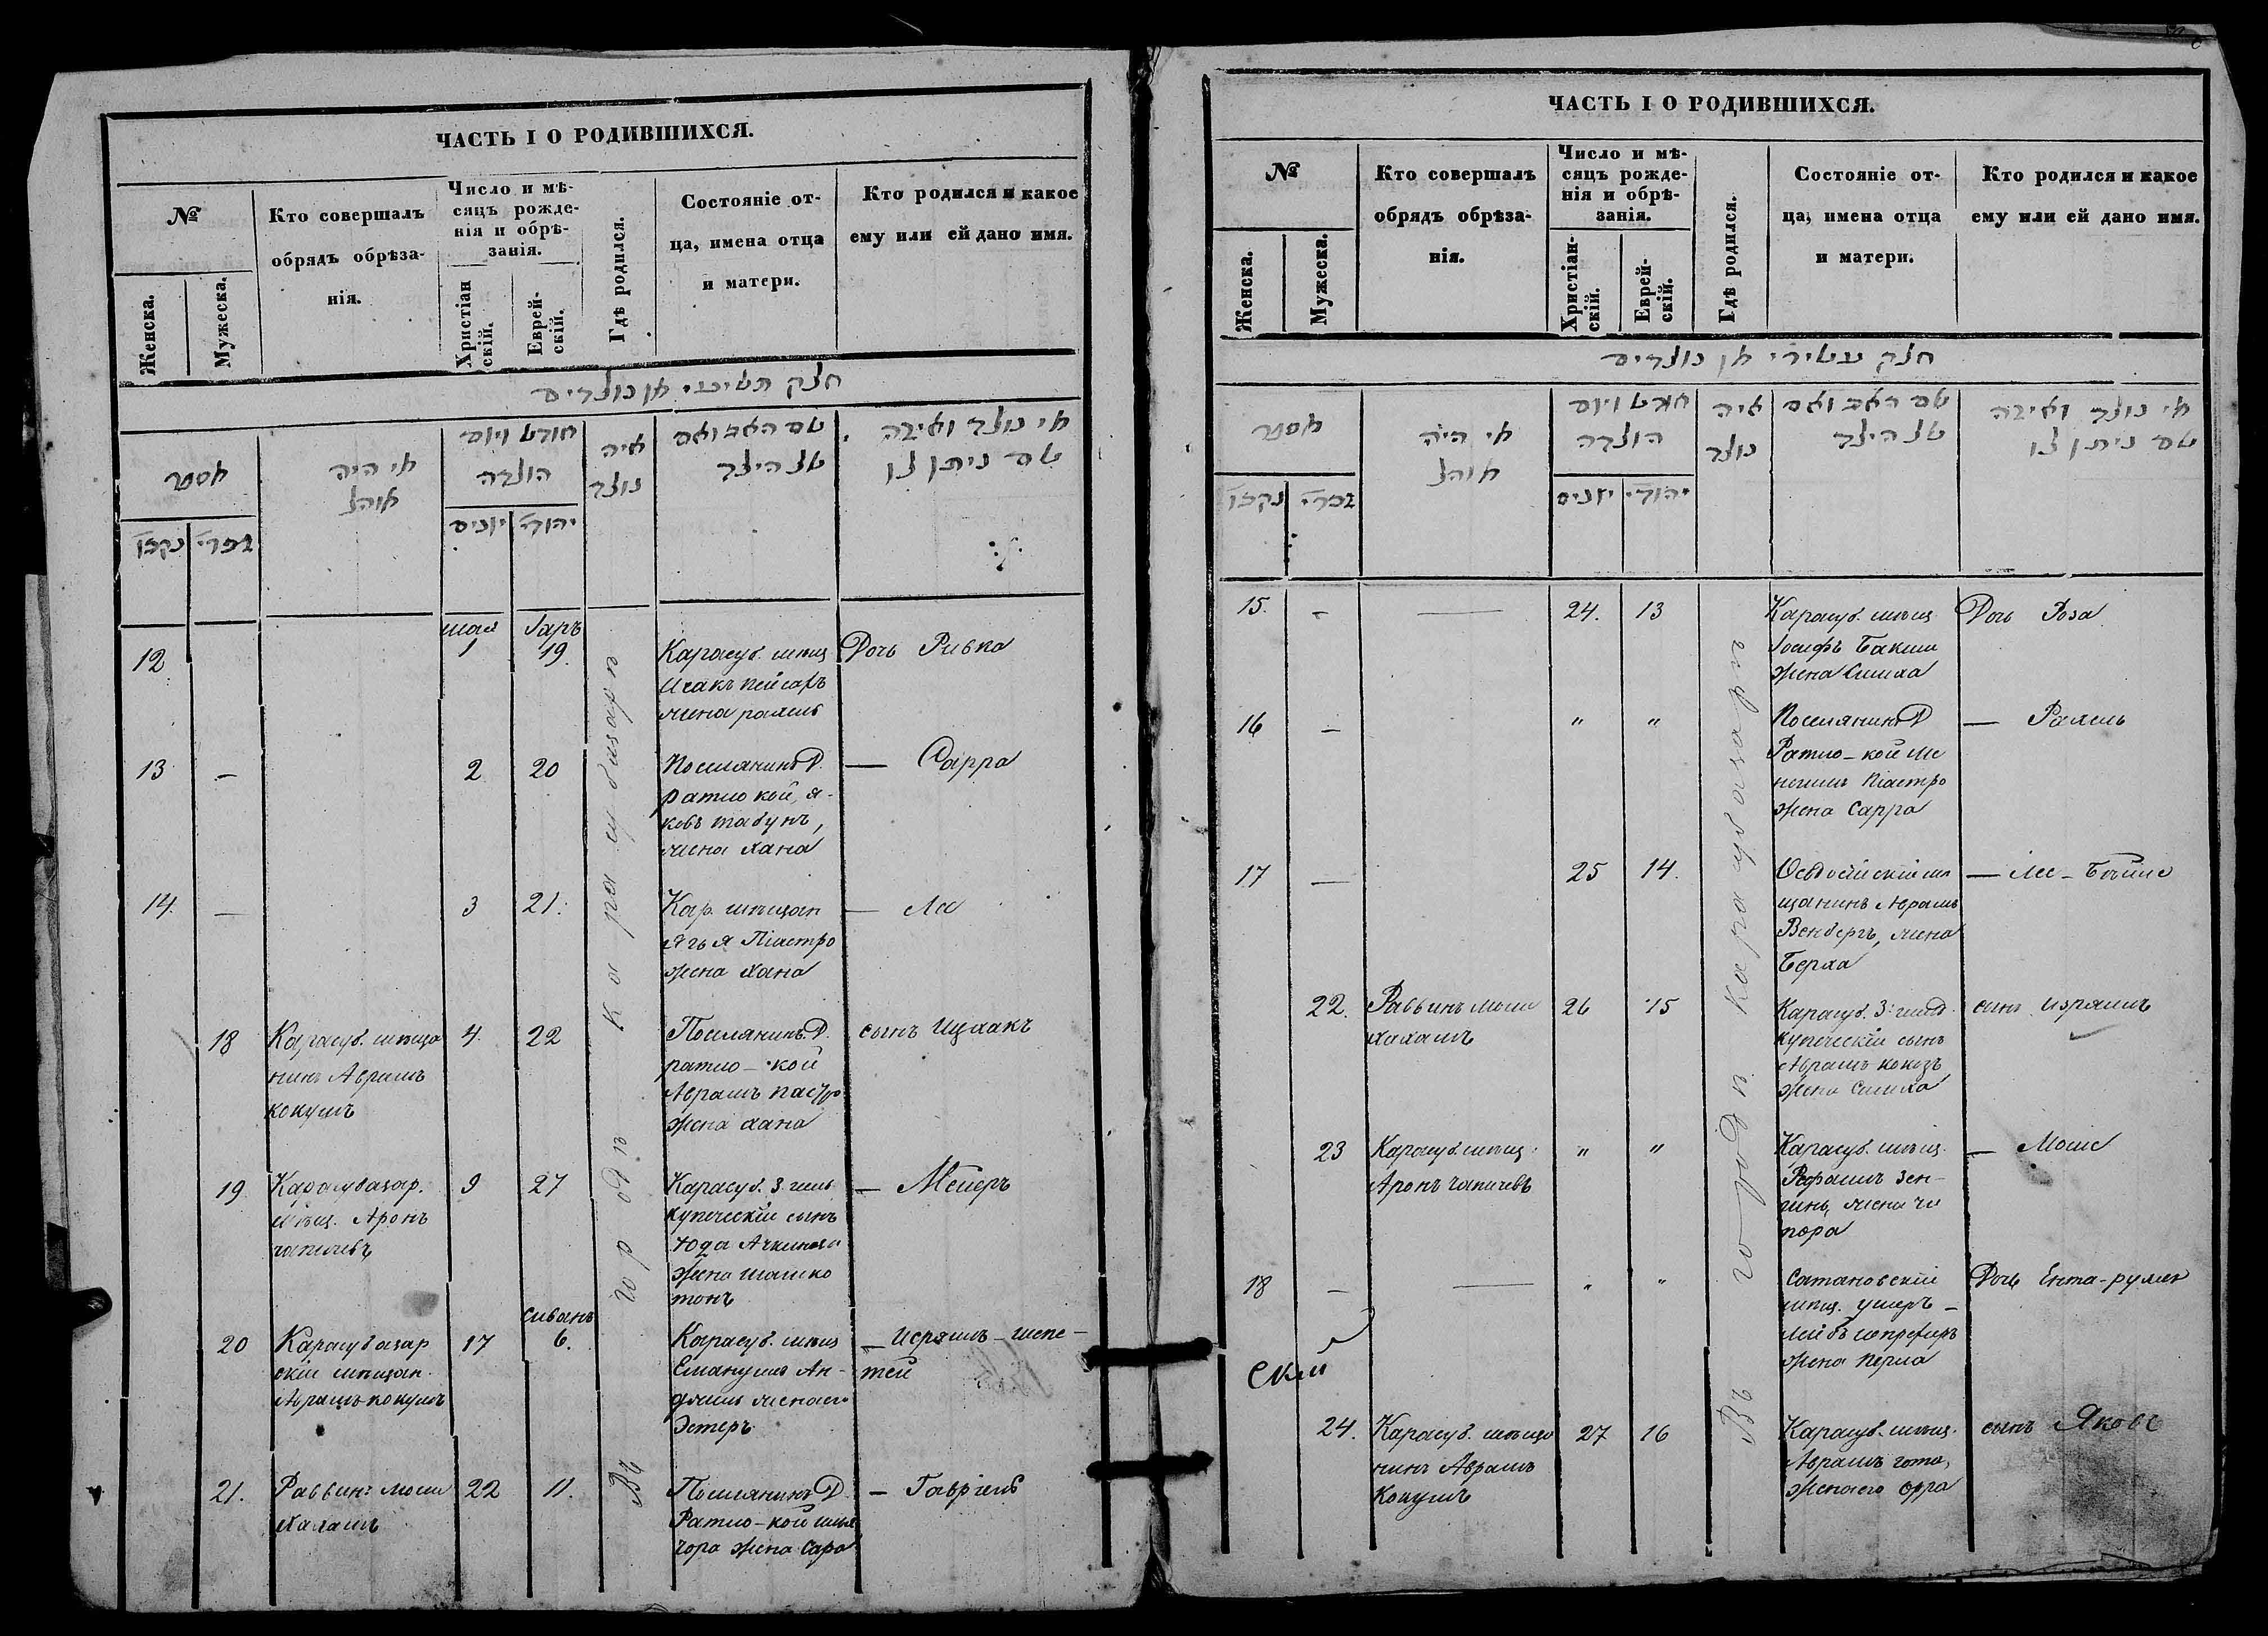 ЧАСТЬ I О РОДИВШИХСЯ.
№
Женска.
Мужеска.
Кто совершалъ
обрядъ обрѣза-
нія.
Число и мѣ-
сяцъ рожде-
нія и обрѣ-
занія.
Христіан
скій.
Еврей-
скій.
Гдѣ родился.
Состояніе от-
ца, имена отца
и матери.
Кто родился и какое
ему или ей дано имя.
חלק
או נולדים
מספר
נקבו
זכרי
מי היה
מוהל
חודש ויום
הולדה
יונים
יהודי
איה
נולד
שם האב ואם
של הילד
מי נולד ואיזה
שם ניתן לו
Въ городѣ Карасубазарѣ
12
мая
1
Іаръ
19.
Карасуб. мѣщ
Исакъ
жена рахиль
Дочь Ривка
13
—
2
20
Поселянинъ Д.
ратмо кой, я-
ковъ табунъ,
жена хана
— Сарра
14.
—
3
21.
Кар. мѣщан
Піастро
жена хана
— Леа
18
Карасуб. мѣща
нинъ Аврамъ
кокушъ
4
22
Поселянинъ Д.
ратмо — кой
Аврамъ
жена хана
сынъ Ицхакъ
19.
Карасубазар.
мѣщ. Аронъ
чапичевъ
9
27
Карасуб. 3 гиль
купеческій сынъ
Юда
жена
тонъ
— Меиръ
20
Карасубазар
скій мѣщан.
Аврамъ кокушъ
17
сиванъ
6.
Карасуб. мѣщ
Емануилъ Ан-
жена его
Эстеръ
— Исраилъ —
тей
21.
Раввинъ Моше
Хахамъ
22
11.
Поселянинъ Д.
Ратмо — кой
жена Сара
— Гавріелъ
ЧАСТЬ I О РОДИВШИХСЯ.
№
Женска.
Мужеска.
Кто совершалъ
обрядъ обрѣза-
нія.
Число и мѣ-
сяцъ рожде-
нія и обрѣ-
занія.
Христіан-
скій.
Еврей-
скій.
Гдѣ родился.
Состояніе от-
ца, имена отца
и матери.
Кто родился и какое
ему или ей дано имя.
חלק עשירי או נולדים
מספר
נקבו
זכרי
מי היה
מוהל
חודש ויום
הולדה
יונים
יהודי
איה
נולד
שם האב ואם
של הילד
מי נולד ואיזה
שם ניתן לו
Въ городѣ Карасубазарѣ
15.
—
—
24.
13
Карасуб. мѣщ
Іосифъ Бакши
жена Симха
Дочь Роза
16
—
"
"
Поселянинъ Д
Ратмо — кой Ме
піастро
жена Сарра
— Рахиль
17
—
25
14.
мѣ
щанинъ Аврамъ
Венбергъ, жена
Берха
— Леа —
22.
Раввинъ Моше
хахамъ
26
15
Карасуб. 3 гильд.
купеческій сынъ
Аврамъ кокозъ
жена Симха
сынъ Израилъ
23
Карасуб. мѣщ.
Аронъ чапичевъ
"
"
Карасуб. мѣщ.
Рефаилъ Зен-
гинъ, жена чи
пора
— Моше
18
—
—
"
"
Сатановскій
мѣщ. ушеръ —
жена Перла
Дочь Ента —
Ский
24.
Карасуб. мѣща
нинъ Аврамъ
Кокушъ
27
16
Карасуб. мѣщ.
Аврамъ гота,
жена его
сынъ Яковъ